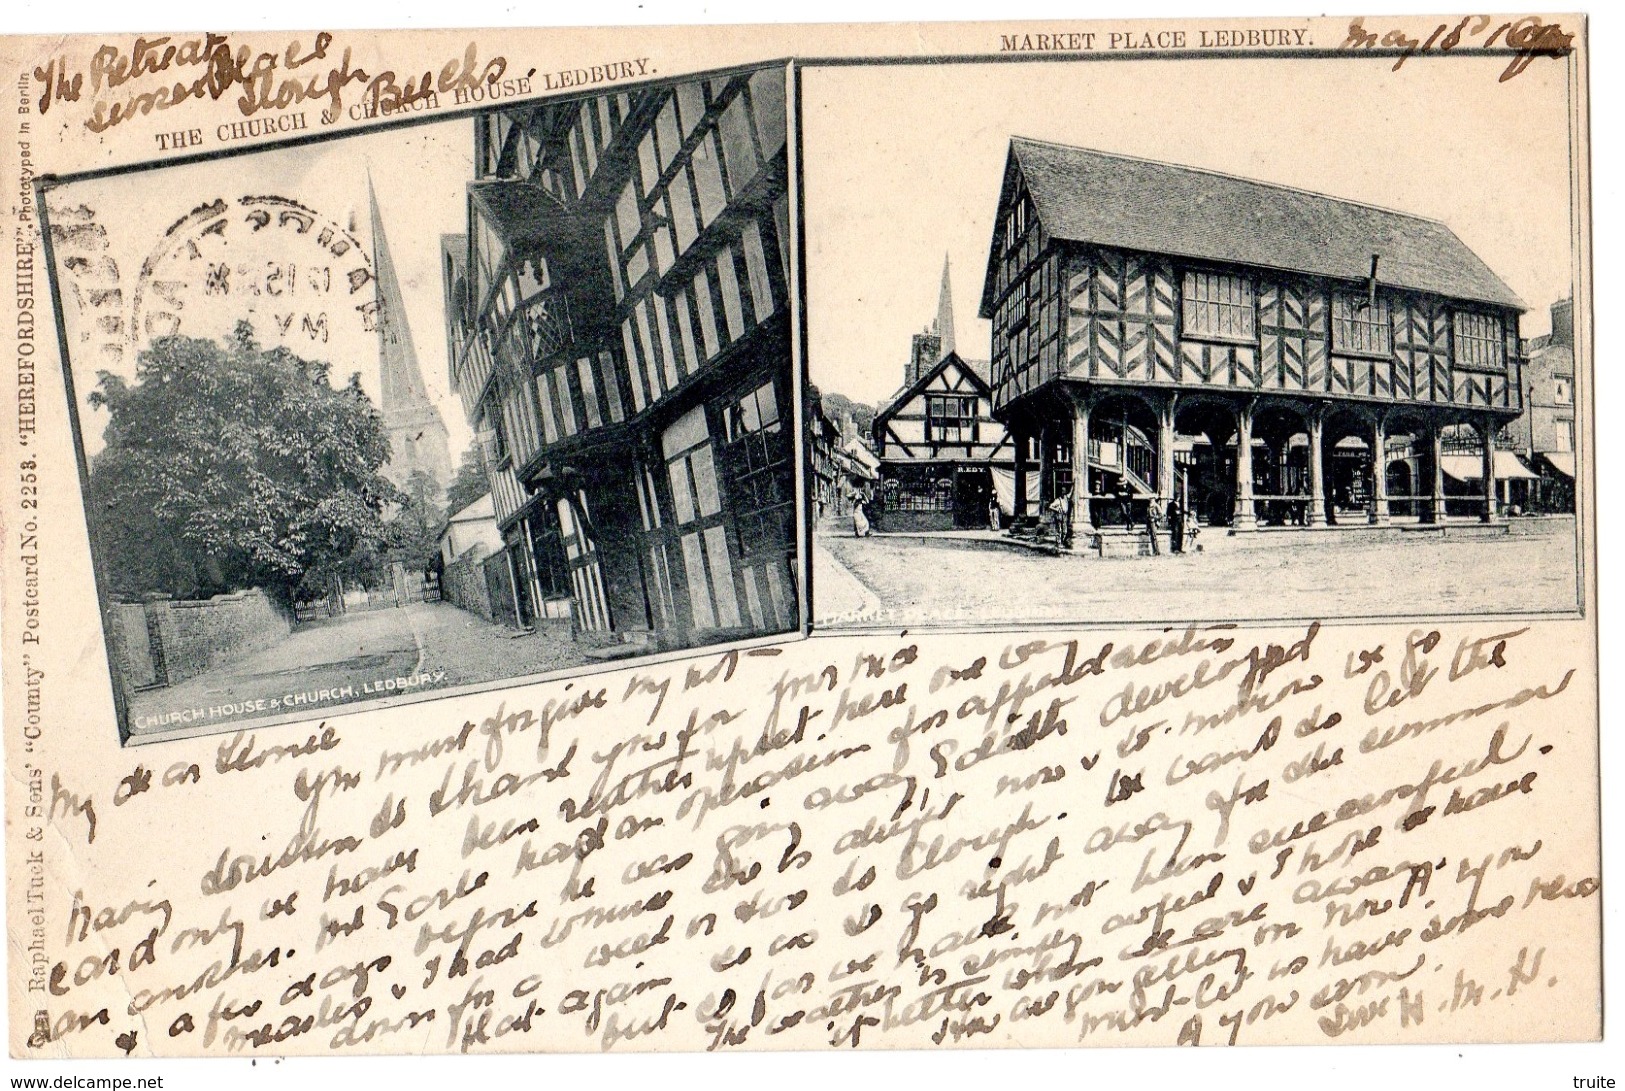 The Retreat
Place
Slough
Bucks.
THE CHURCH & CHURCH HOUSE LEDBURY.
MARKET PLACE LEDBURY.
May 18
Raphael Tuck & Sons' "County" Postcard No. 2253. "HEREFORDSHIRE". Phototyped in Berlin
R.EDY.
CHURCH HOUSE & CHURCH, LEDBURY.
My dear
You must forgive my not
having written to thank you for your nice
card only we have been rather upset here one way
an another. Mr had an operation for appendicitis
& a few days before he was going away Edith developed
measles & I had to nurse she is alright now & to-morrow we go
down for a week or two to Slough. We want to let the
flat again so as to go right away for the summer
but so far we have not been successful.
The weather is simply awful & I hope we have
it better when we are away.
How are you getting on now? you
must let us have some news
of you soon.
Love H. M. H.
truite
www.delcampe.net